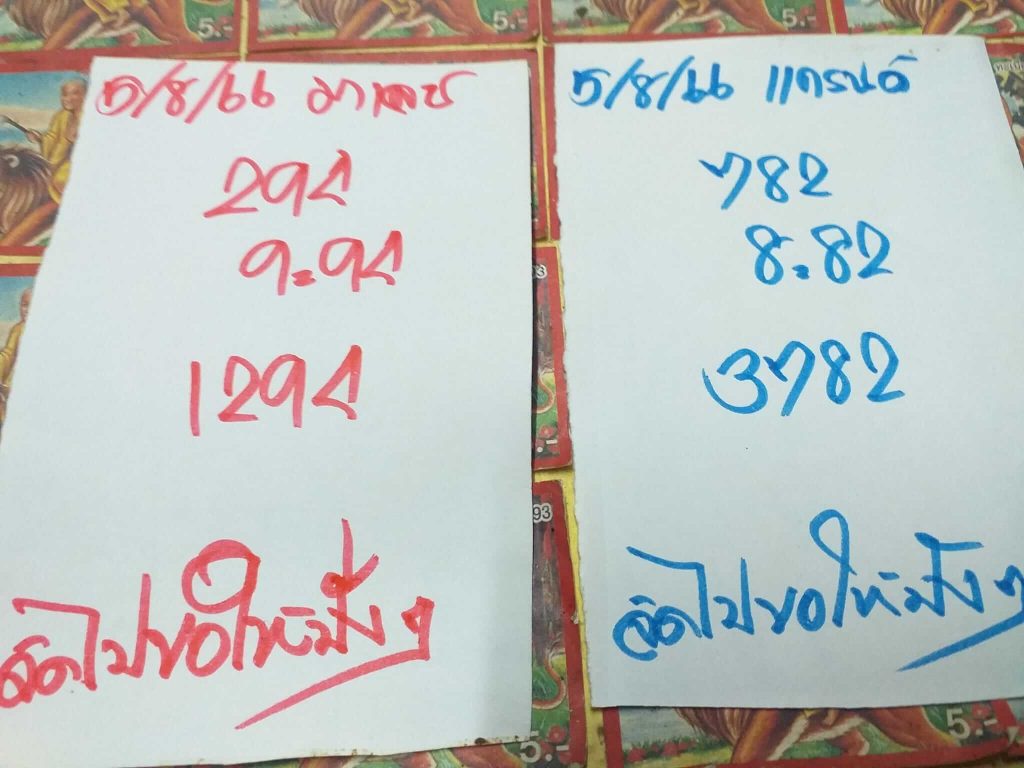 5/8/66 มาเลย์
294
9.94
1294
จัดไปขอให้ปังๆ
5/8/66 แกรนด์
782
8.82
3782
จัดไปขอให้ปังๆ
5.-
5.-
5.-
93
93
5.-
5.-